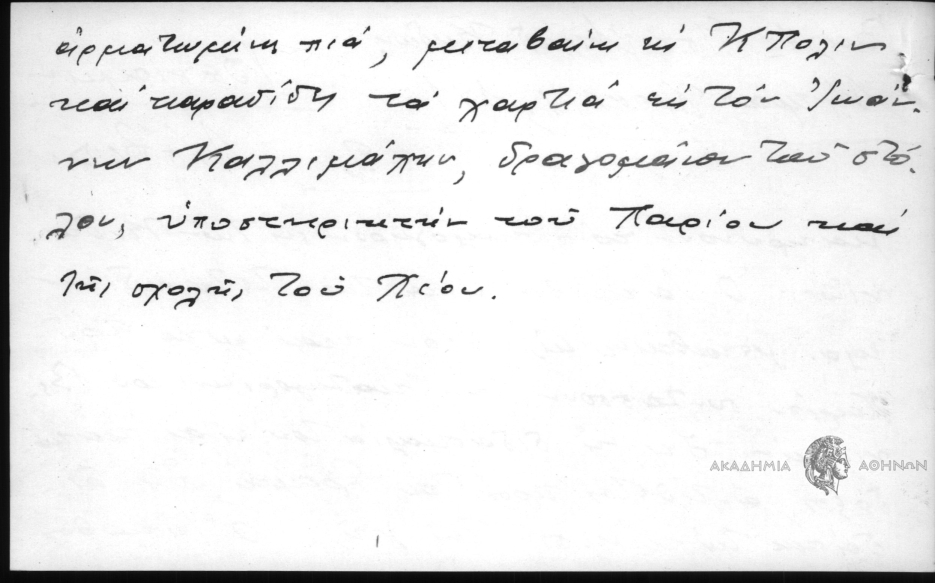 ἁρματωμένη πιά, μεταβαίνει εἰς ΚΠολιν
καί παραδίδει τά χαρτιά εἰς τόν Ἰωάν-
νην Καλλιμάχην, δραγομάνον τοῦ στό-
λου, ὑποστηρικτήν τοῦ Παρίου καί
τῆς σχολῆς τοῦ
ΑΚΑΔΗΜΙΑ ΑΘΗΝΩΝ